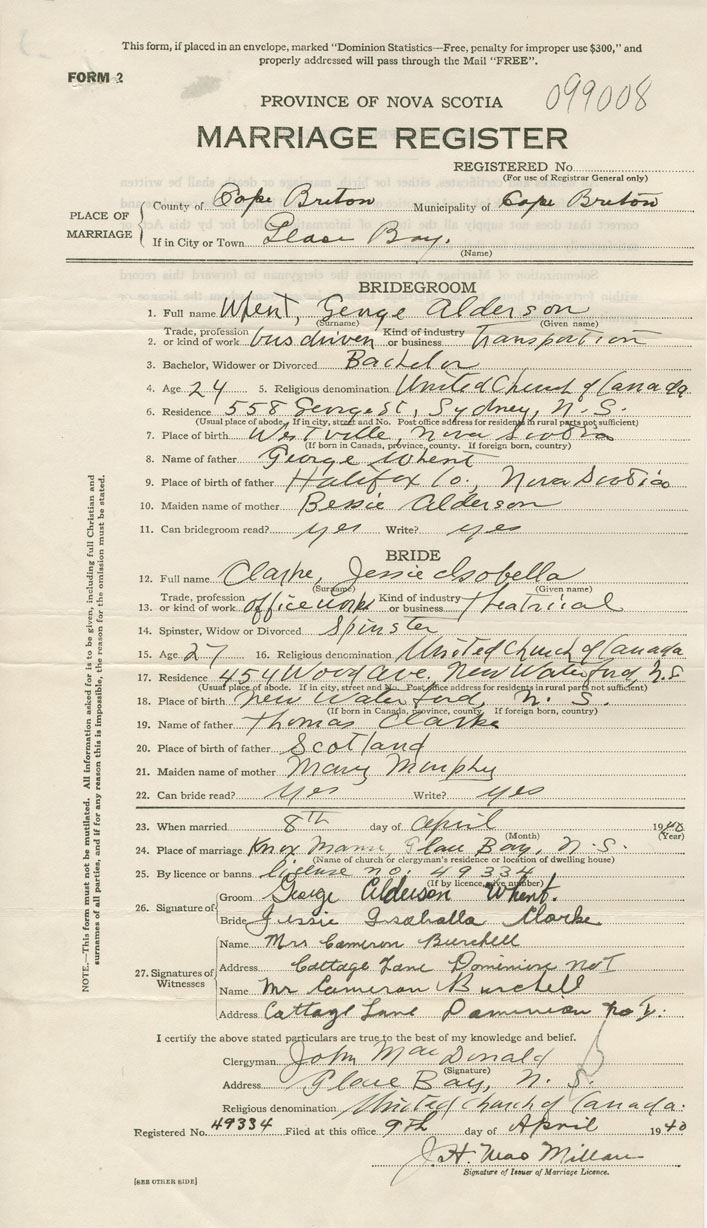 This form, if placed in an envelope, marked "Dominion Statistics—Free, penalty for improper use $300," and
properly addressed will pass through the Mail "FREE".
FORM 2
099008
PROVINCE OF NOVA SCOTIA
MARRIAGE REGISTER
REGISTERED No.
(For use of Registrar General only)
PLACE OF MARRIAGE
County of Cape Breton Municipality of Cape Breton
If in City or Town Glace Bay.
(Name)
BRIDEGROOM
1. Full name Whent, George Alderson
(Surname) (Given name)
2. Trade, profession or kind of work bus driver Kind of industry or business Transportion
3. Bachelor, Widower or Divorced Bachelor
4. Age 24 5. Religious denomination United Church of Canada
6. Residence 558 George St, Sydney, N. S.
(Usual place of abode. If in city, street and No. Post office address for residents in rural parts not sufficient)
7. Place of birth Westville, Nova Scotia
(If born in Canada, province, county. If foreign born, country)
8. Name of father George Whent
9. Place of birth of father Halifax Co., Nova Scotia
10. Maiden name of mother Bessie Alderson
11. Can bridegroom read? yes Write? yes
BRIDE
12. Full name Clarke, Jessie Isobella
(Surname) (Given name)
13. Trade, profession or kind of work office work Kind of industry or business theatrical
14. Spinster, Widow or Divorced Spinster
15. Age 27 16. Religious denomination United Church of Canada
17. Residence 454 Wood Ave. New Waterford, N.S
(Usual place of abode. If in city, street and No. Post office address for residents in rural parts not sufficient)
18. Place of birth New Waterford, N. S.
(If born in Canada, province, county. If foreign born, country)
19. Name of father Thomas Clarke
20. Place of birth of father Scotland
21. Maiden name of mother Mary Murphy
22. Can bride read? yes Write? yes
23. When married 8th day of April 1940
(Month) (Year)
24. Place of marriage Knox Manse, Glace Bay, N. S.
(Name of church or clergyman's residence or location of dwelling house)
25. By licence or banns license no: 49334
(If by licence, give number)
26. Signature of
Groom George Alderson Whent.
Bride Jessie Isabella Clarke
27. Signatures of Witnesses
Name Mrs Cameron Burchell
Address Cottage Lane Dominion No 1
Name Mr Cameron Burchell
Address Cottage Lane Dominion No 1.
I certify the above stated particulars are true to the best of my knowledge and belief.
Clergyman John MacDonald
(Signature)
Address Glace Bay, N. S.
Religious denomination United Church of Canada.
Registered No. 49334 Filed at this office 9th day of April 1940
J. H. MacMillan
Signature of Issuer of Marriage Licence.
[SEE OTHER SIDE]
NOTE.—This form must not be mutilated. All information asked for is to be given, including full Christian and
surnames of all parties, and if for any reason this is impossible, the reason for the omission must be stated.